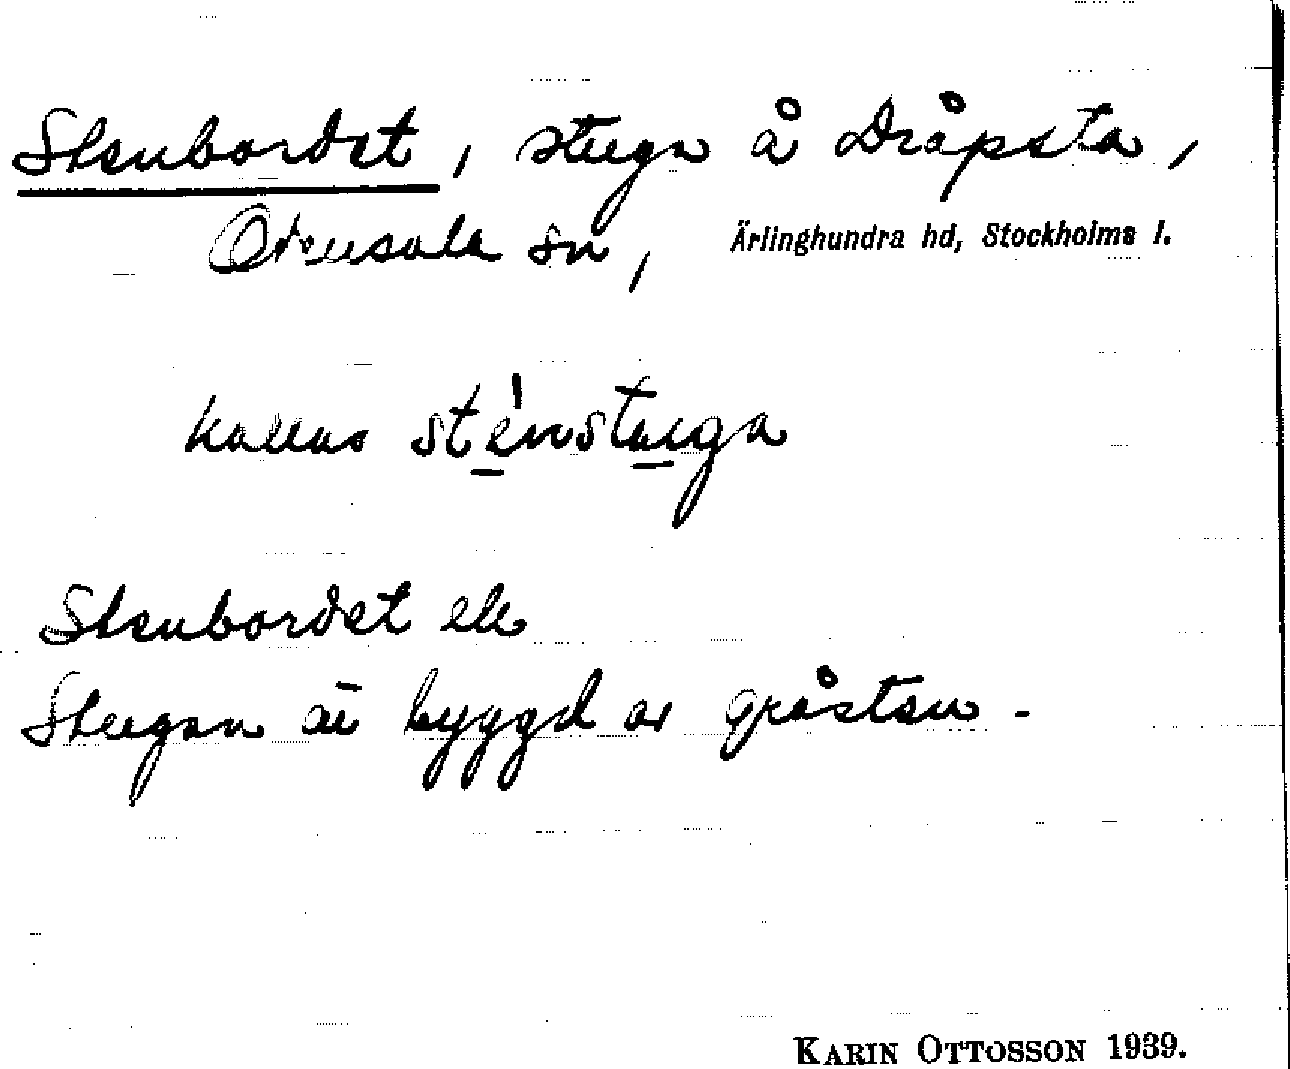 Stenbordet, stuga å Dråpsta,
Odensala sn, Ärlinghundra hd, Stockholms l.
kallas sténstuga
Stenbordet el.
Stugan är byggd av gråsten.
KARIN OTTOSSON 1939.